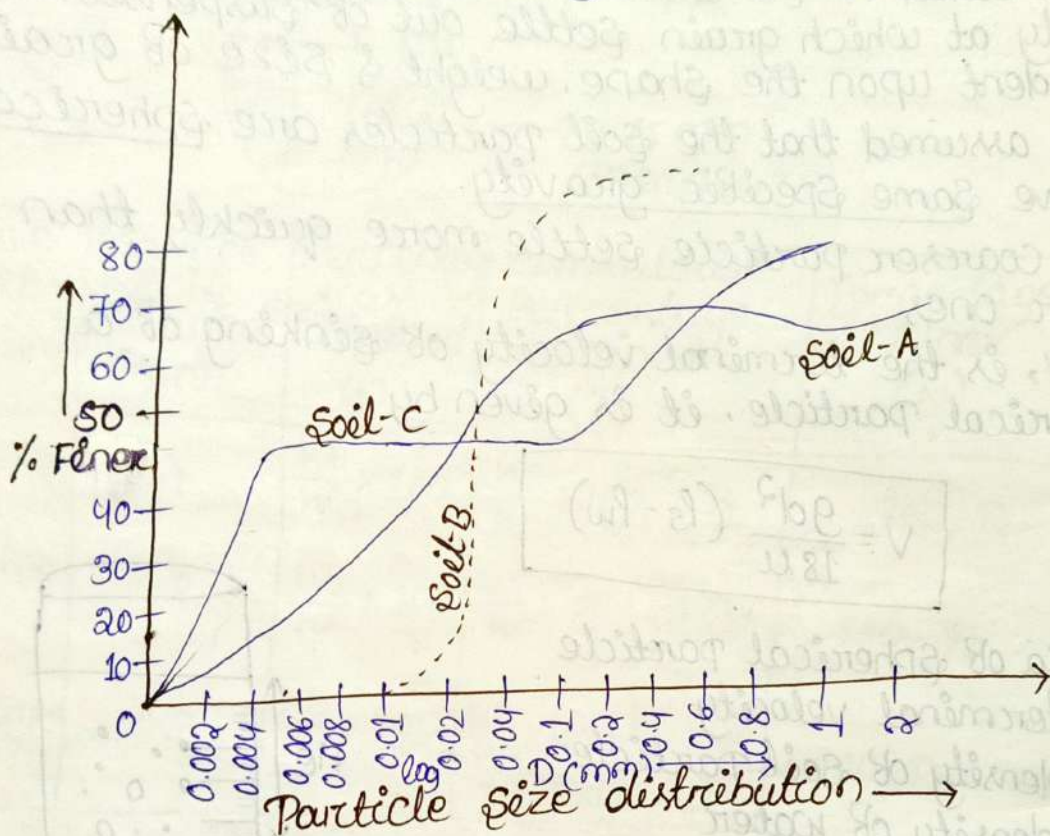 80
70
60
50
% Finer
40
30
20
10
0
Soil-C
Soil-B
Soil-A
0.002
0.004
0.006
0.008
0.01
0.02
0.04
0.1
0.2
0.4
0.6
0.8
1
2
log D(mm)
Particle size distribution
V = gd² / 18μ